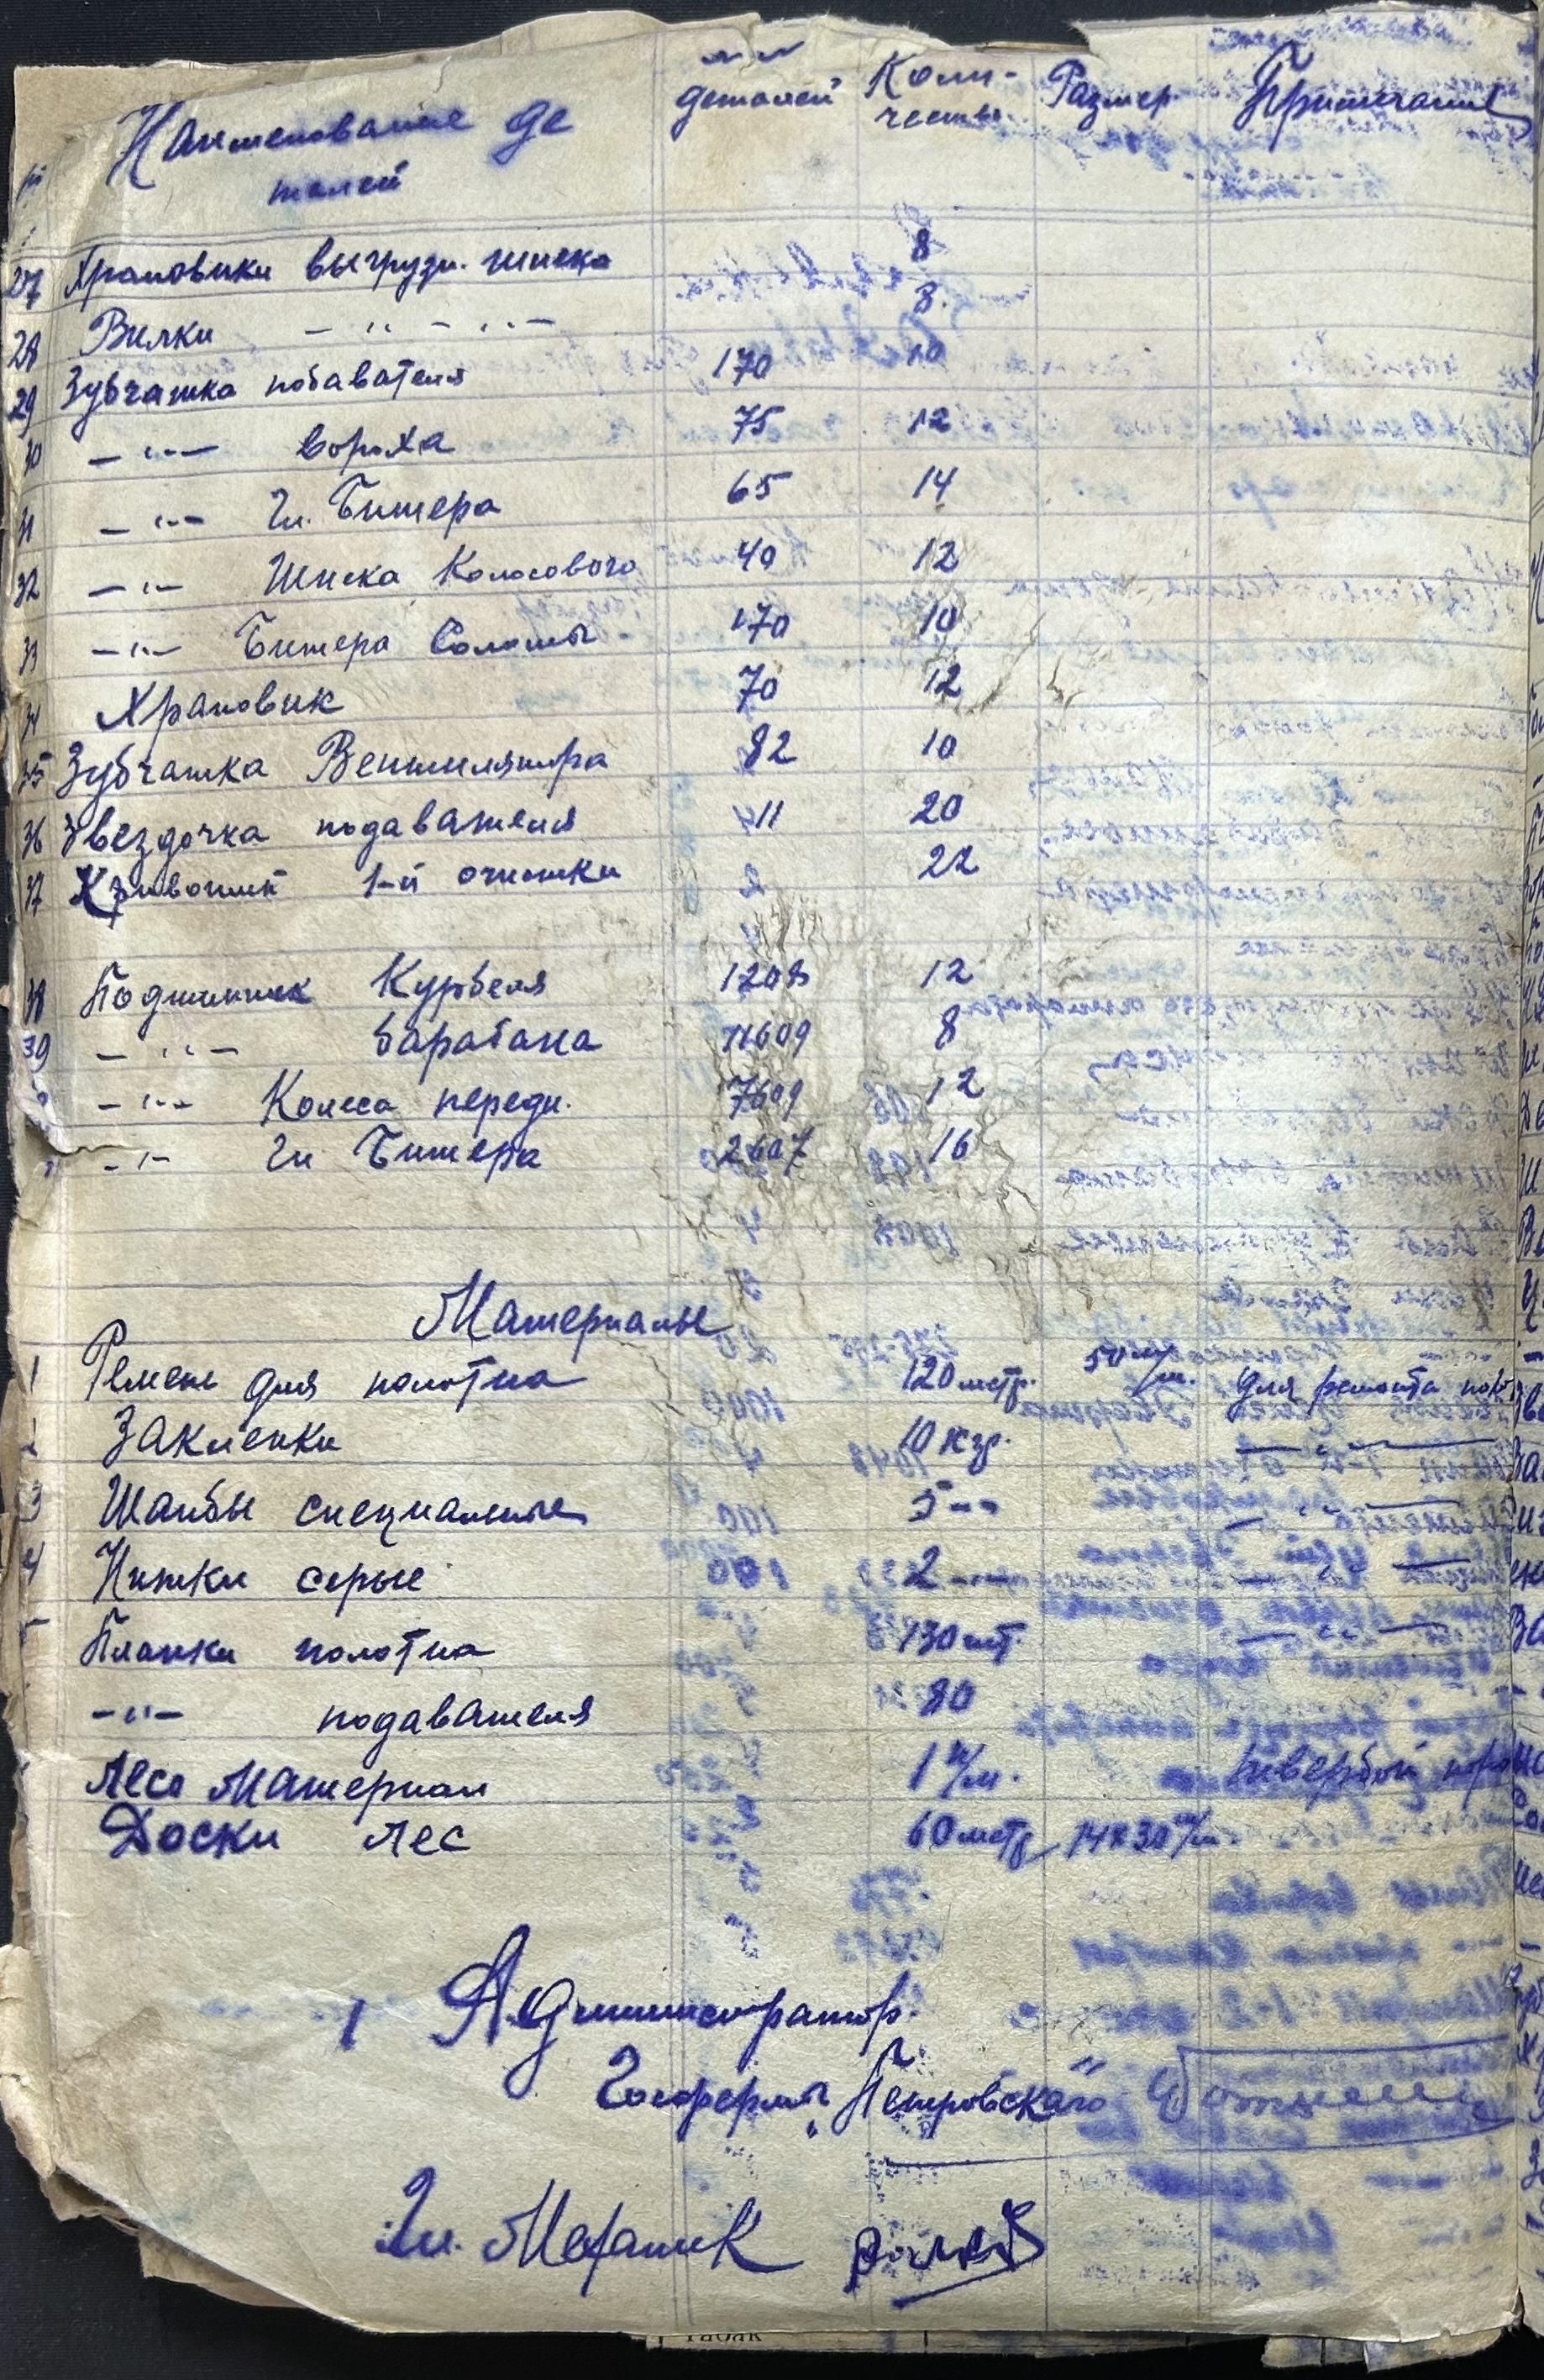 Наименование де
талей
деталей
Коли-
чество
Размер
Примечание
27 Храповики выгрузн. шнека 8
28 Вилки — " — " — 8.
29 Зубчатка подавателя 170 10
30 — " — вороха 75 12
31 — " — Гл. Битера 65 14
32 — " — Шнека Колосового 40 12
33 — " — Битера Соломы 170 10
34 Храповик 70 12
35 Зубчатка Вентилятора 82 10
36 Звездочка подавателя 411 20
37 Кривошип 1-й очистки 22
38 Подшипник Курбеля 1208 12
39 — " — барабана 11609 8
— " — Колеса передн. 7609 12
— " — Гл Битера 2607 16
Материалы
1 Ремень для полотна 120 метр. 50 м/м. для ремонта пол.
2 Заклепки 10 кгр. — " —
3 Шайбы специальные 5 — " — " —
4 Нитки серые 2 — " — " —
Планки полотна 130 шт. — " —
— " — подавателя 80
Лесо Материал 1 к/м. твердой поро
Доски лес 60 метр 14х30 м/м
Администратор.
Госфермы „Петровского"
Гл. Механик
табак